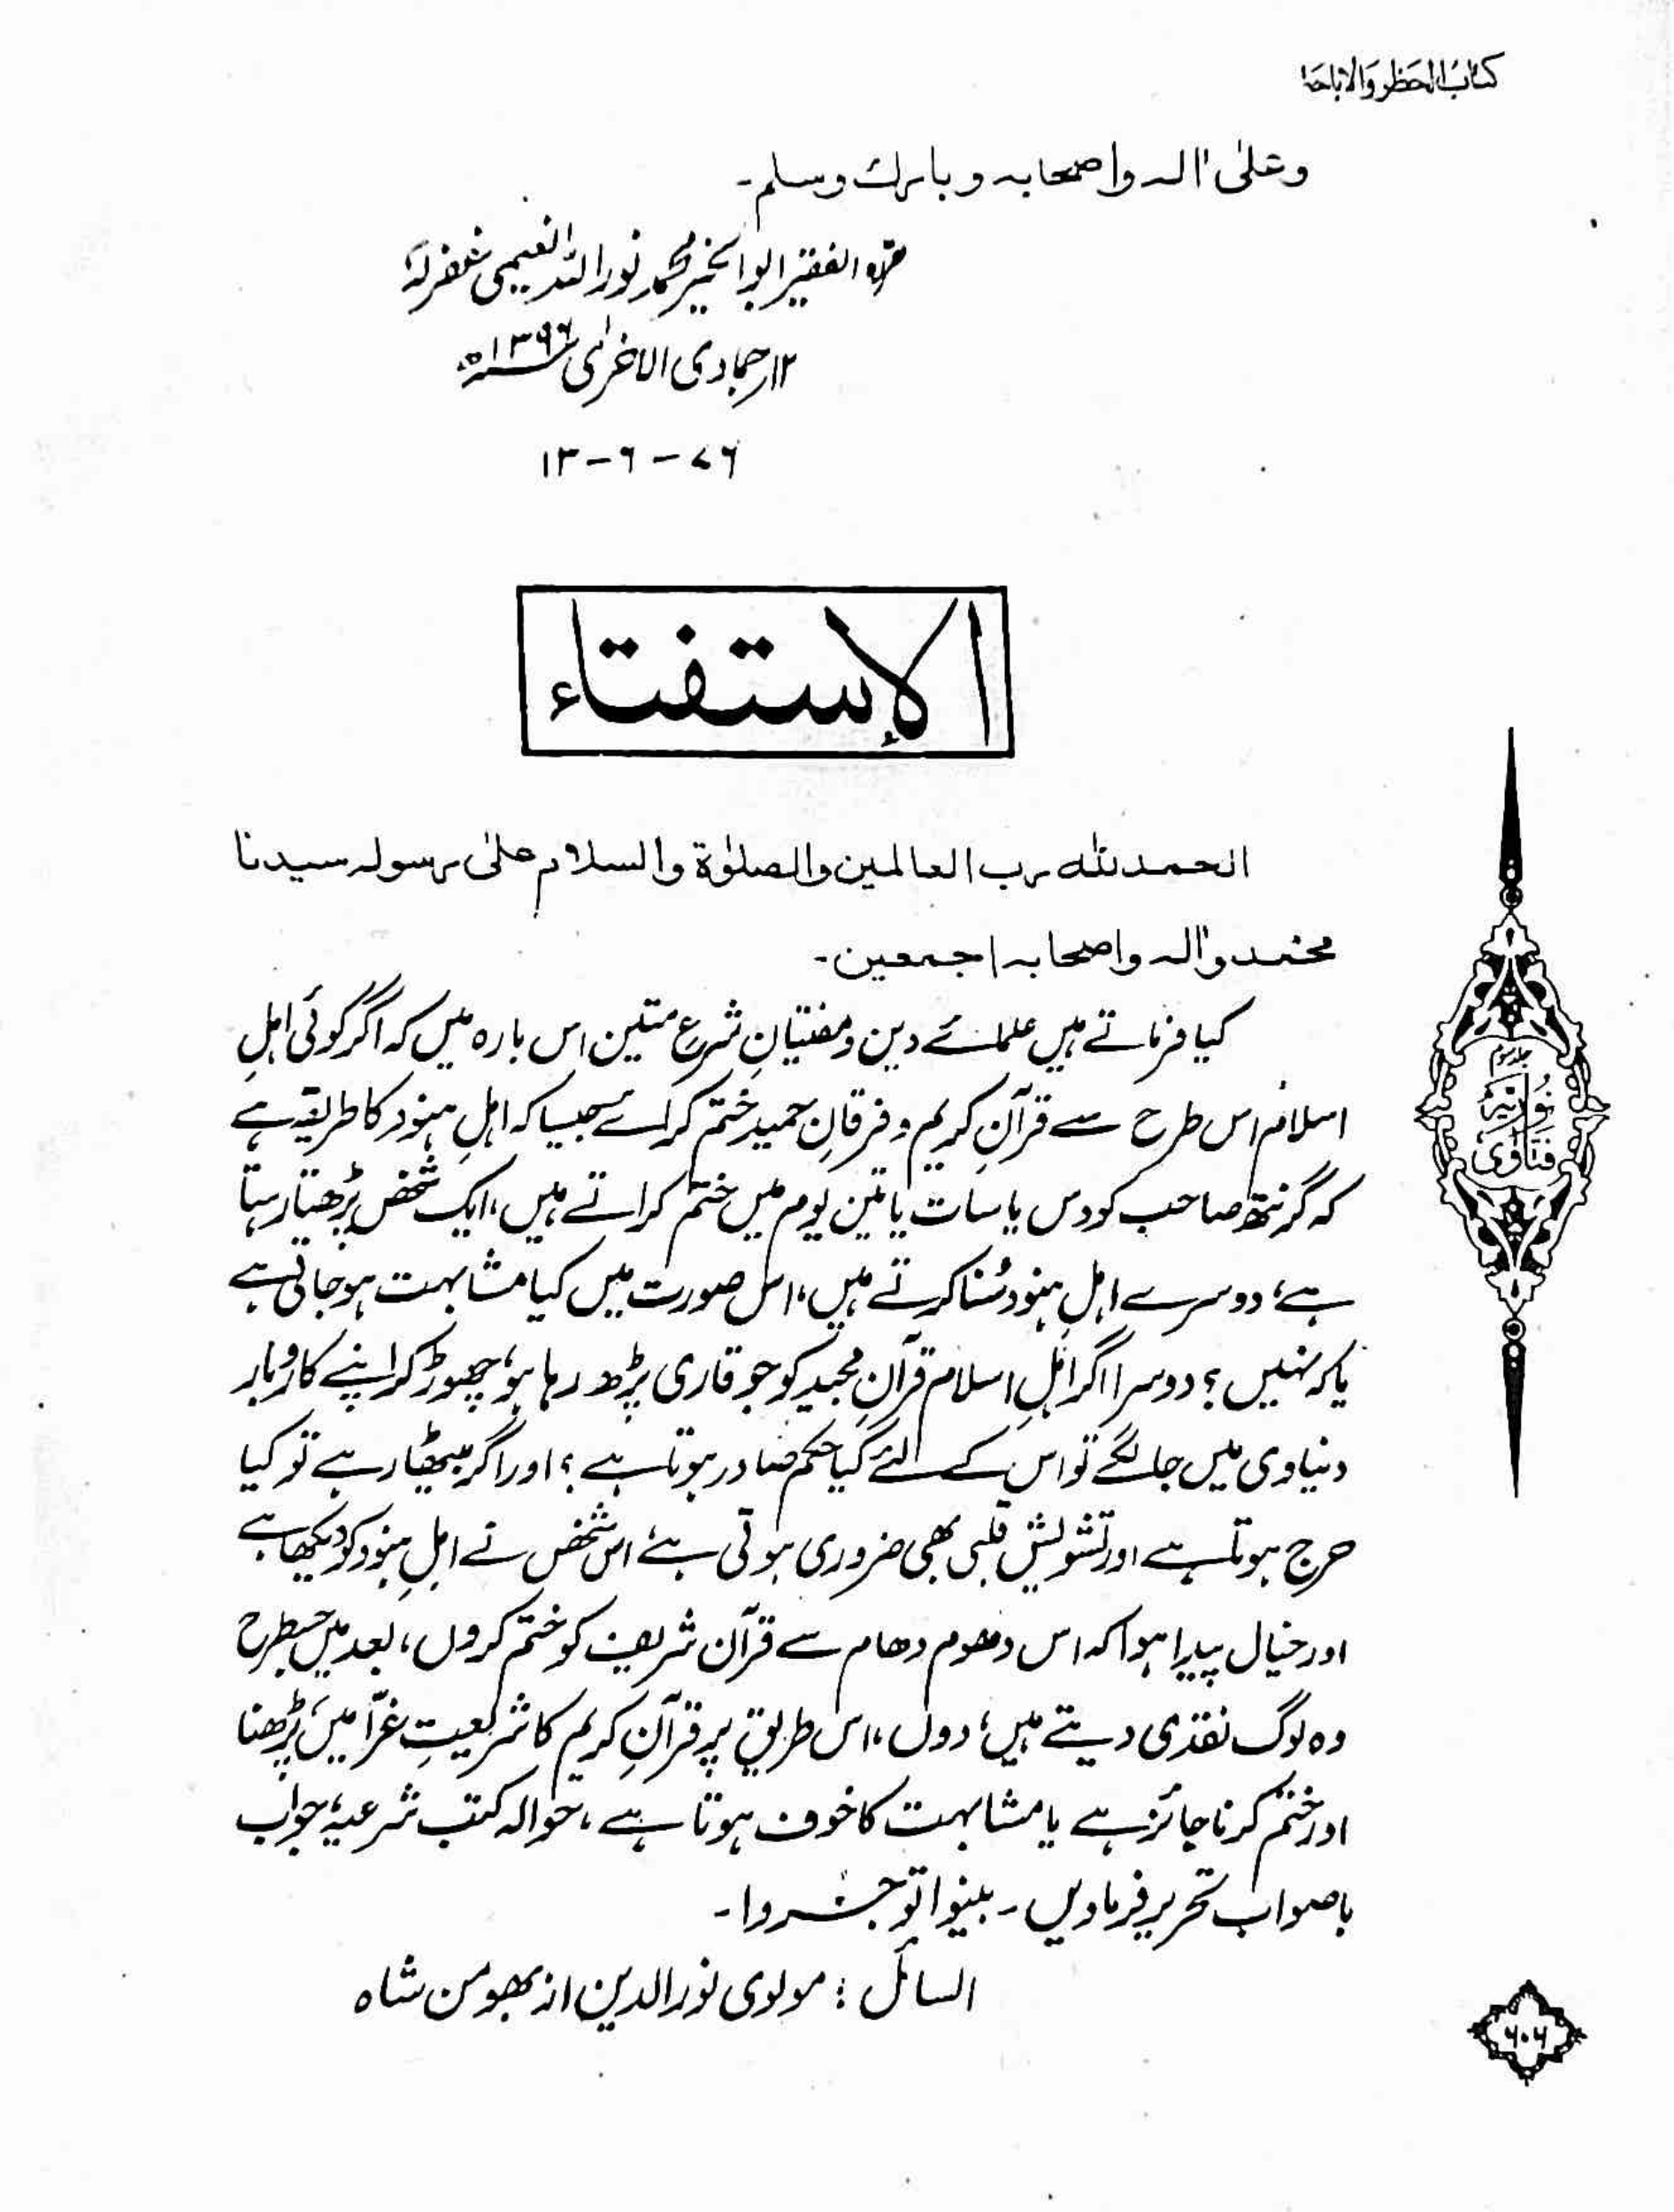 کتاب الحظر والاباحۃ
وعلیٰ اٰلہ واصحابہ وبارك وسلم۔
حرّہ الفقیر ابوالخیر محمد نور اللہ النعیمی غفرلہٗ
۱۲؍جمادی الاخریٰ ۱۳۹۶ھ
۱۳-۶-۷۶
الاستفتاء
الحمد للّٰہ رب العالمین والصلوٰۃ والسلام علیٰ رسولہ سیدنا
محمد واٰلہ واصحابہ اجمعین۔
کیا فرماتے ہیں علمائے دین و مفتیانِ شرع متین اس بارہ میں کہ اگر کوئی اہلِ
اسلام اس طرح سے قرآنِ کریم و فرقانِ حمید ختم کرائے جیسا کہ اہلِ ہنود کا طریقہ ہے
کہ گرنتھ صاحب کو دس یا سات یا تین یوم میں ختم کراتے ہیں، ایک شخص پڑھتا رہتا
ہے، دوسرے اہلِ ہنود سُنا کرتے ہیں، اس صورت میں کیا مشابہت ہوجاتی ہے
یا کہ نہیں؟ دوسرا اگر اہلِ اسلام قرآنِ مجید کو جو قاری پڑھ رہا ہو، چھوڑ کر اپنے کاروبار
دنیاوی میں جا لگے تو اس کے لئے کیا حکم صادر ہوتا ہے؟ اور اگر بیٹھا رہے تو کیا
حرج ہوتا ہے اور تشویشِ قلبی بھی ضروری ہوتی ہے، اس شخص نے اہلِ ہنود کو دیکھا ہے
اور خیال پیدا ہوا کہ اس دھوم دھام سے قرآن شریف کو ختم کروں، بعد میں جسطرح
وہ لوگ نقدی دیتے ہیں، دوں، اس طریق پر قرآنِ کریم کا شریعتِ غرّا میں پڑھنا
اور ختم کرنا جائز ہے یا مشابہت کا خوف ہوتا ہے، حوالہ کتب شرعیہ، جواب
باصواب تحریر فرماویں۔ بینوا توجروا۔
السائل: مولوی نورالدین از بھومن شاہ
جلد سوم
نُوریہ
فتاوٰی
۶۰۶